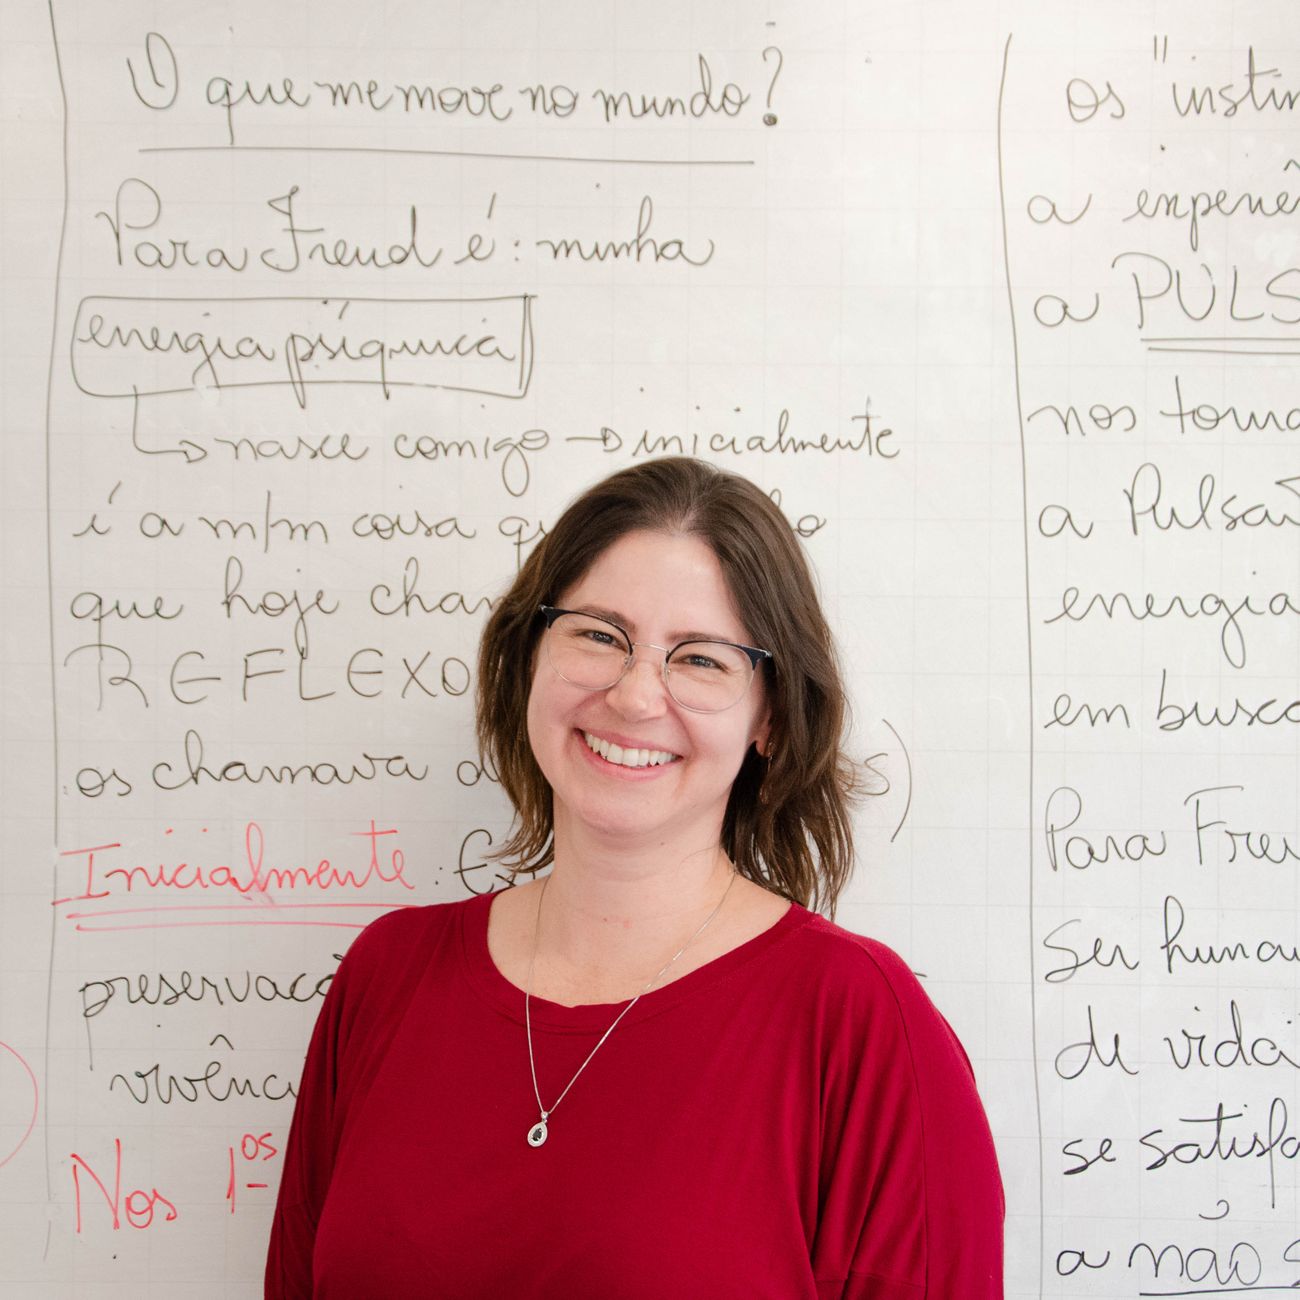 O que me move no mundo?
Para Freud é: minha
energia psíquica
nasce comigo → inicialmente
é a m/m coisa
que hoje
REFLEXO
os chamava
Inicialmente:
vivênci
Nos 1os
os "instin
a experiê
a PULS
nos torna
a Pulsã
energia
em busca
Para Freu
Ser huma
de vida
se satisf
a não